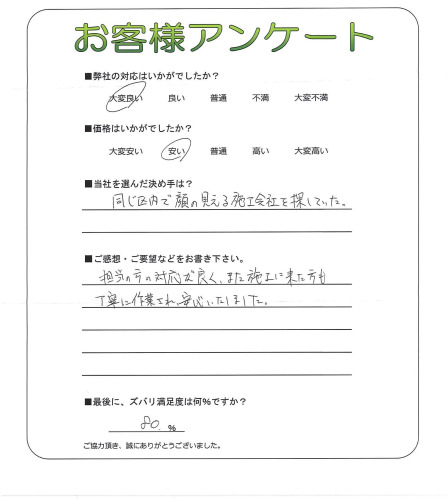 お客様アンケート
■弊社の対応はいかがでしたか?
大変良い 良い 普通 不満 大変不満
■価格はいかがでしたか?
大変安い 安い 普通 高い 大変高い
■当社を選んだ決め手は?
同じ区内で顔の見える施工会社を探していた。
■ご感想・ご要望などをお書き下さい。
担当の方の対応が良く、また施工に来た方も
丁寧に作業され、安心いたしました。
■最後に、ズバリ満足度は何%ですか?
80. %
ご協力頂き、誠にありがとうございました。